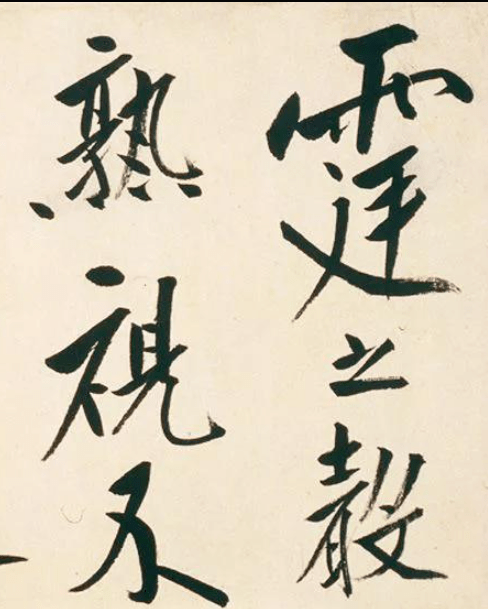 霆之聲
熟視不